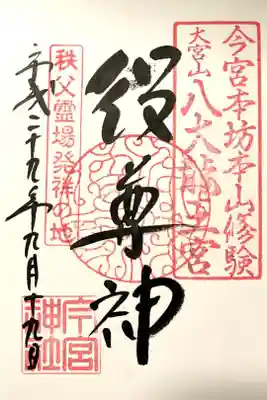 今宮本坊本山修験
大宮山
八大龍王宮
役尊神
秩父霊場発祥の地
平成二十九年九月十九日
今宮神社